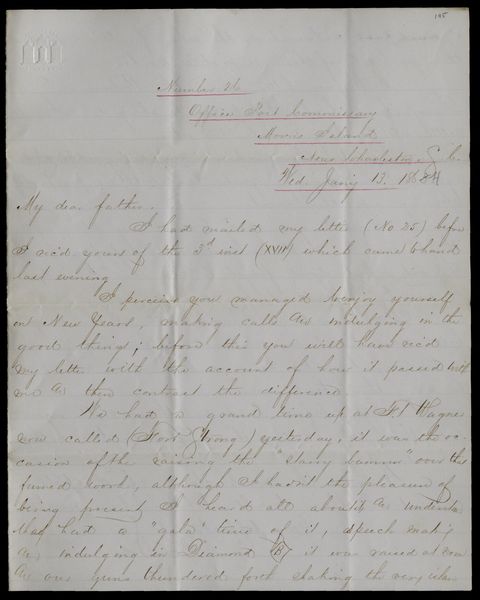 195
Number 26
Office Post Commissary
Morris Island
Near Charleston, S. C.
Wed. Jan'y 13. 1864
My dear father.
I had mailed my letter (No 25) before
I rec'd yours of the 3d inst (XVII) which came to hand
last evening
I perceive you managed to enjoy yourself
on New Years, making calls & indulging in the
good things; before this you will have rec'd
my letter with the account of how it passed with
me & then contrast the difference
We had a grand time up at Ft Wagner
now called (Fort Strong) yesterday, it was the oc-
casion of the raising the "starry banner" over this
famed work, although I hadn't the pleasure of
being present I heard all about it & understand
they had a "gala" time of it, speech making
& indulging in Diamond B it was raised at noon
& our guns thundered forth shaking the very